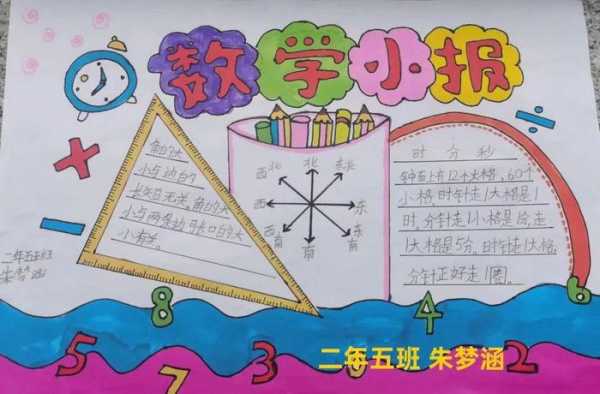 数学小报
角的大
小与边的
长短无关,角的大
小与两条边张口的大
小有关。
西北 北 东北
西 东
西南 南 东南
时 分 秒
钟面上有12个大格,60个
小格,时针走1大格是1
时,分针走1小格是1分,走
1大格是5分。时针走1大格,
分针正好走1圈。
二年五班
朱梦涵
+ - ÷
8 4 6
5 7 3 2
二年五班 朱梦涵